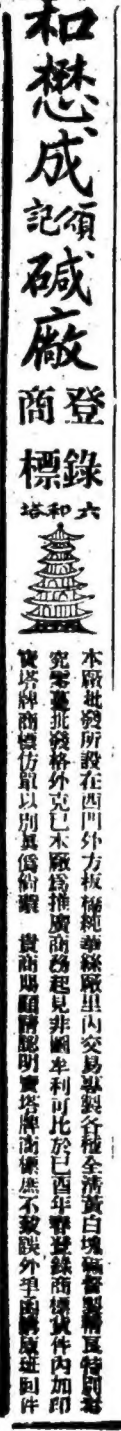 和懋成
頎記
碱廠
登錄
商標
六和塔
本廠批發所設在西門外方板橋純華絲廠里內交易專製各種全清黃白塊碱督製精良特別考
究零躉批發格外克己本廠爲推廣商務起見非圖牟利可比於己酉年春登錄商標貨件內加印
寶塔牌商標仿單以別眞僞倘蒙 貴商賜顧請認明寶塔牌商標庶不致誤外埠函購原班回件